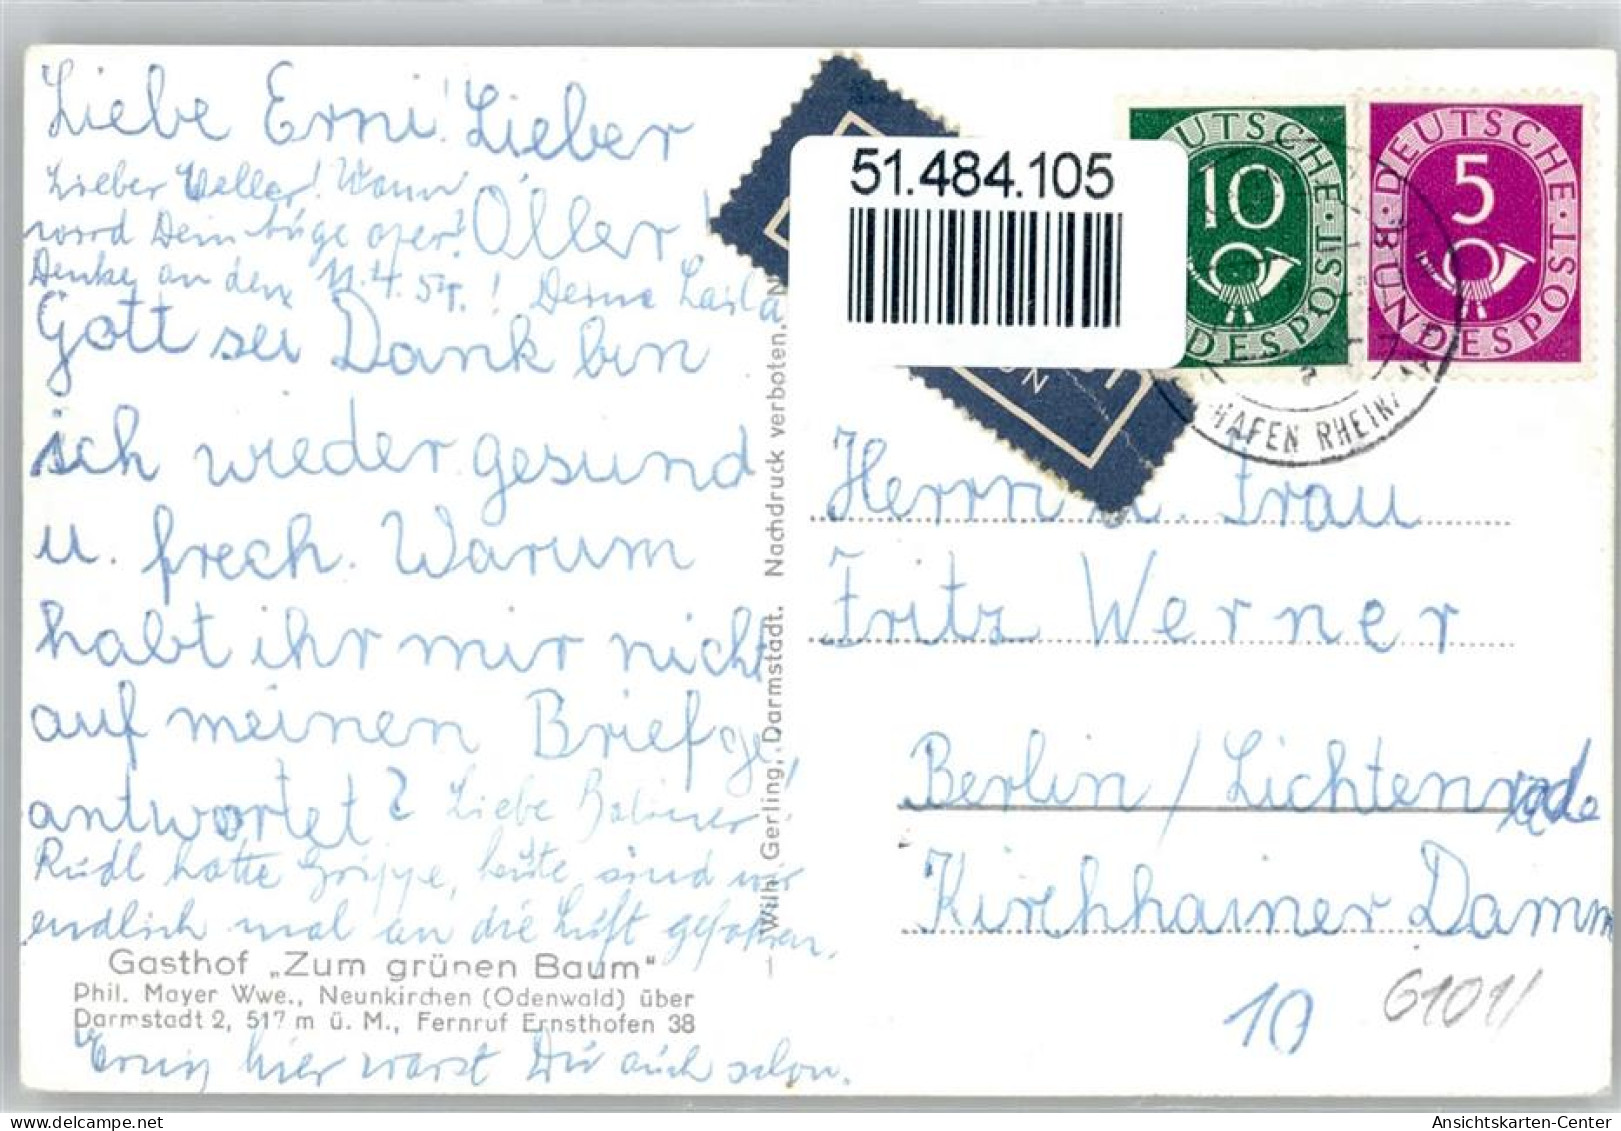 Liebe Erni! Lieber
Lieber Weller! Wann
Öller!
word Dein Auge oper.?
Denke an den 11.4.54.! Deine Laila
Gott sei Dank bin
ich wieder gesund
u. frech. Warum
habt ihr mir nicht
auf meinen Brief ge,
antwortet? Liebe
Rudl hatte Grippe, heute sind wir
endlich mal an die Luft gefahren.
Gasthof „Zum grünen Baum"
Phil. Mayer Wwe., Neunkirchen (Odenwald) über
Darmstadt 2, 517 m ü. M., Fernruf Ernsthofen 38
hier warst Du auch schon.
Wilh. Gerling, Darmstadt. Nachdruck verboten. N
51.484.105
DEUTSCHE BUNDESPOST
10
DEUTSCHE BUNDESPOST
5
HAFEN RHEIN
Herrn u. Frau
Fritz Werner
Berlin/Lichtenrade
Kirchhainer Damm
10
6101/
AnsichtsKarten-Center